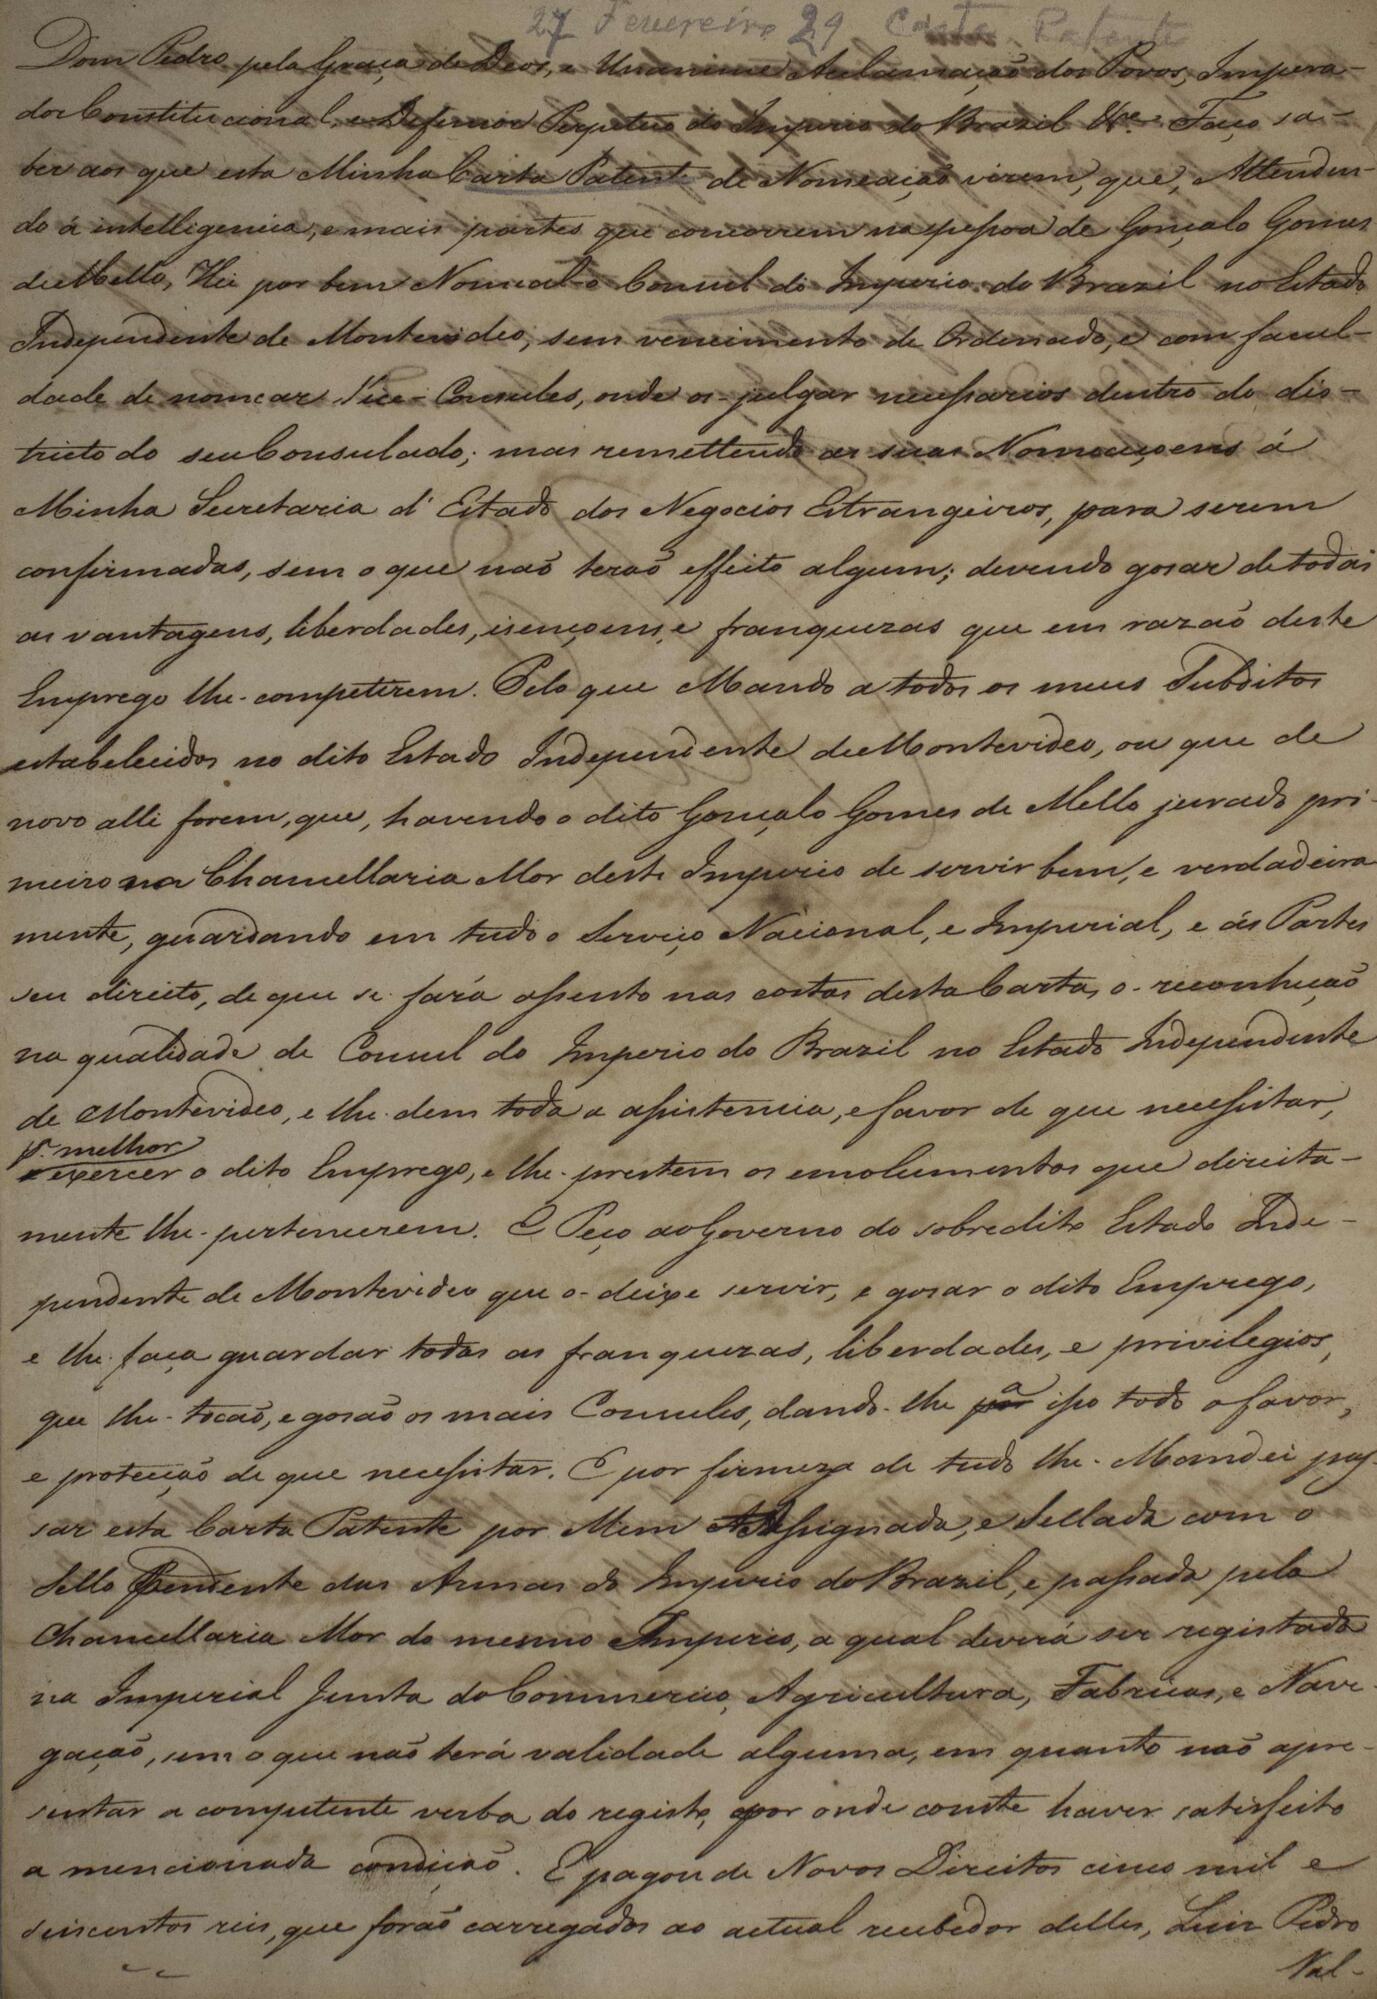 27 Fevereiro 29 Carta Patente
Dom Pedro, pela Graça de Deos, e Unanime Acclamação dos Povos, Impera-
dor Constitucional, e Defensor Perpetuo do Imperio do Brazil &ca. Faço sa-
ber aos que esta Minha Carta Patente de Nomeação virem, que, Attenden-
do á intelligencia, e mais partes que concorrem na pessoa de Gonçalo Gomes
de Mello, Hei por bem Nomeal-o Consul do Imperio do Brazil no Estado
Independente de Montevideo, sem vencimento de Ordenado, e com facul-
dade de nomear Vice-Consules, onde os-julgar necessarios dentro do dis-
tricto do seu Consulado; mas remettendo as suas Nomeaçoens á
Minha Secretaria d'Estado dos Negocios Estrangeiros, para serem
confirmadas, sem o que naõ teraõ effeito algum; devendo gosar de todas
as vantagens, liberdades, isençoens, e franquezas que em razaõ deste
Emprego lhe-competirem. Pelo que Mando a todos os meus Subditos
estabelecidos no dito Estado Independente de Montevideo, ou que de
novo alli forem, que, havendo o dito Gonçalo Gomes de Mello jurado pri-
meiro na Chancellaria Mor deste Imperio de servir bem, e verdadeira
mente, guardando em tudo o Serviço Nacional, e Imperial, e ás Partes
seu direito, de que se fará assento nas costas desta Carta, o-reconheçaõ
na qualidade de Consul do Imperio do Brazil no Estado Independente
de Montevideo, e lhe-dem toda a assistencia, e favor de que necessitar,
pa. melhor
exercer o dito Emprego, e lhe-prestem os emolumentos que direita-
mente lhe-pertencerem. E Peço ao Governo do sobredito Estado Inde-
pendente de Montevideo que o-deixe servir, e gosar o dito Emprego,
e lhe-faça guardar todas as franquezas, liberdades, e privilegios,
que lhe-tocaõ, e gosaõ os mais Consules, dando-lhe pa isso todo o favor,
e protecçaõ de que necessitar. E por firmeza de tudo lhe-Mandei pas-
sar esta Carta Patente por Mim Assignada, e Sellada com o
Sello Pendente das Armas do Imperio do Brazil, e passada pela
Chancellaria Mor do mesmo Imperio, a qual deverá ser registada
na Imperial Junta do Commercio, Agricultura, Fabricas, e Nave-
gaçaõ, sem o que naõ terá validade alguma, em quanto naõ apre-
sentar a competente verba do registo, por onde conste haver satisfeito
a mencionada condiçaõ. E pagou de Novos Direitos cinco mil e
seiscentos reis, que foraõ carregados ao actual recebedor delles, Luiz Pedro
Nal-